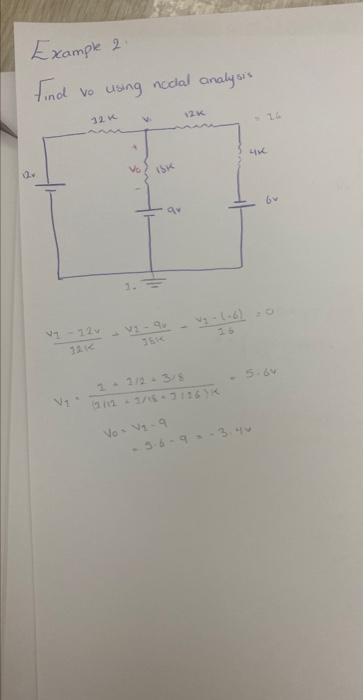 Example 2.
Find vo using nodal analysis
12K V₁ 12K = 16
12v Vo + - 18K 4K
9v 6v
1.
V1 - 12v / 12K + V1 - 9v / 18K + V1 - (-6) / 16 = 0
V1 = 1 + 1/2 + 3/8 / (1/12 + 1/18 + 1/16)K = 5.6v
Vo = V1 - 9
= 5.6 - 9 = -3.4v